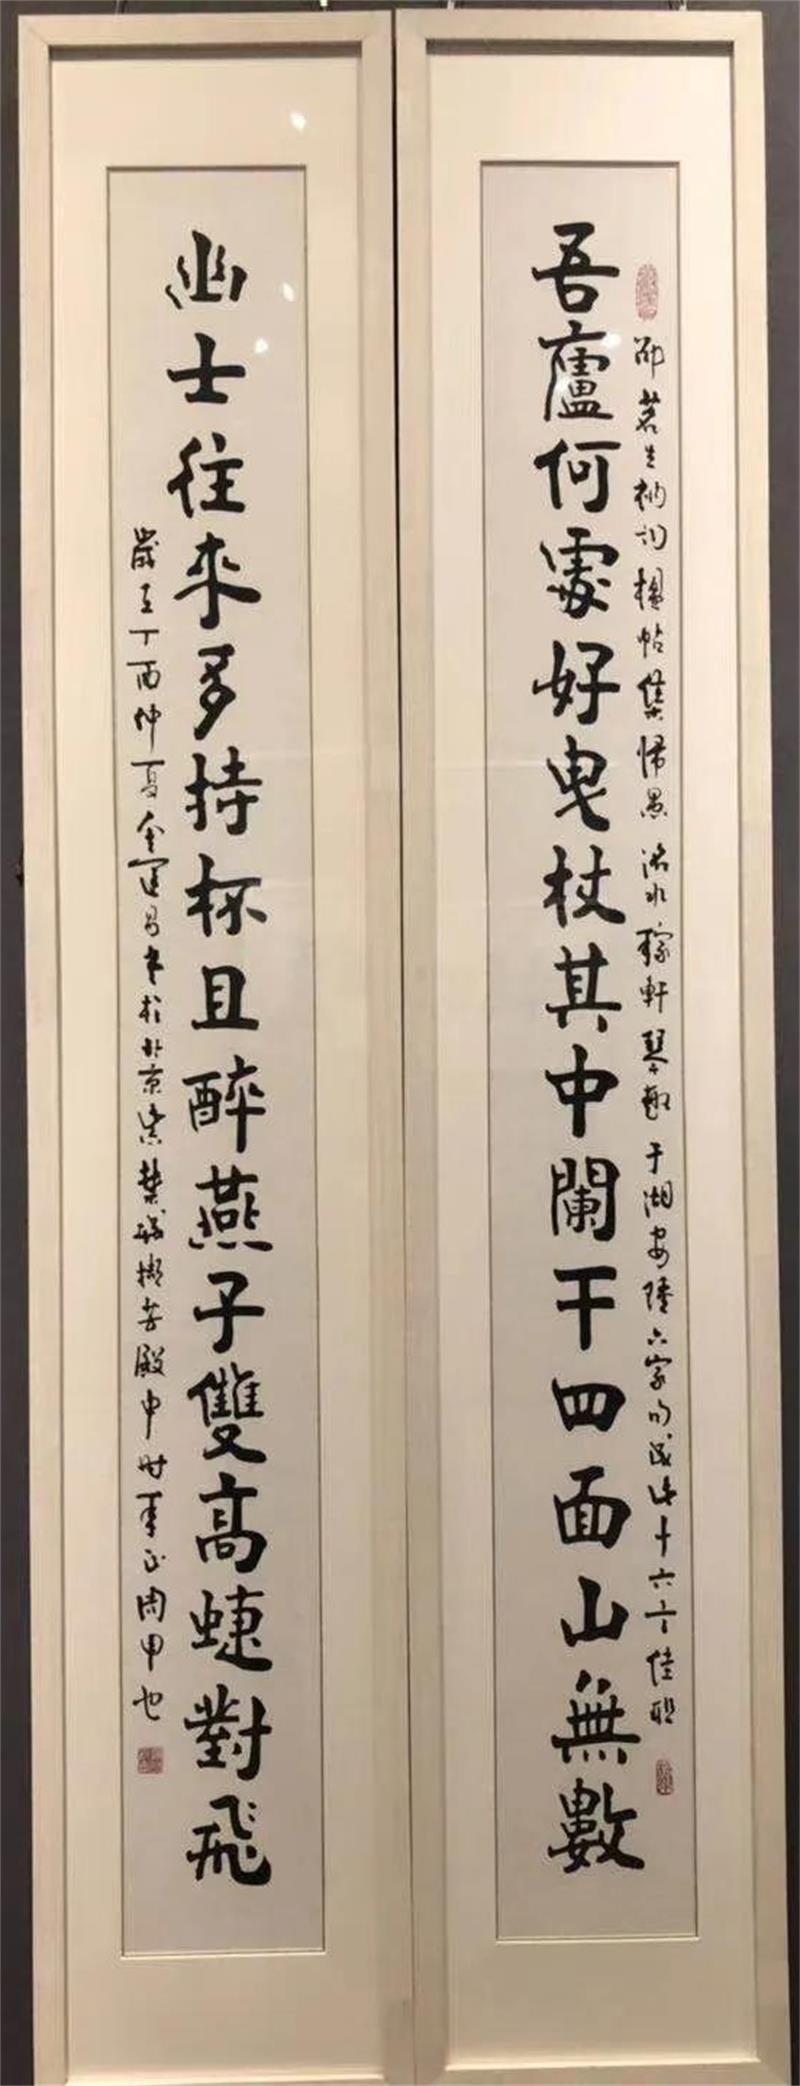 吾廬何處好曳杖其中闌干四面山無數
邵茗生衲詞楹帖集歸愚洺水稼軒琴趣于湖安陸六家句成此十六言佳聯
幽士往來多持杯且醉燕子雙高蜨對飛
歲在丁酉仲夏金運昌書於北京紫禁城擷芳殿中時年正周甲也